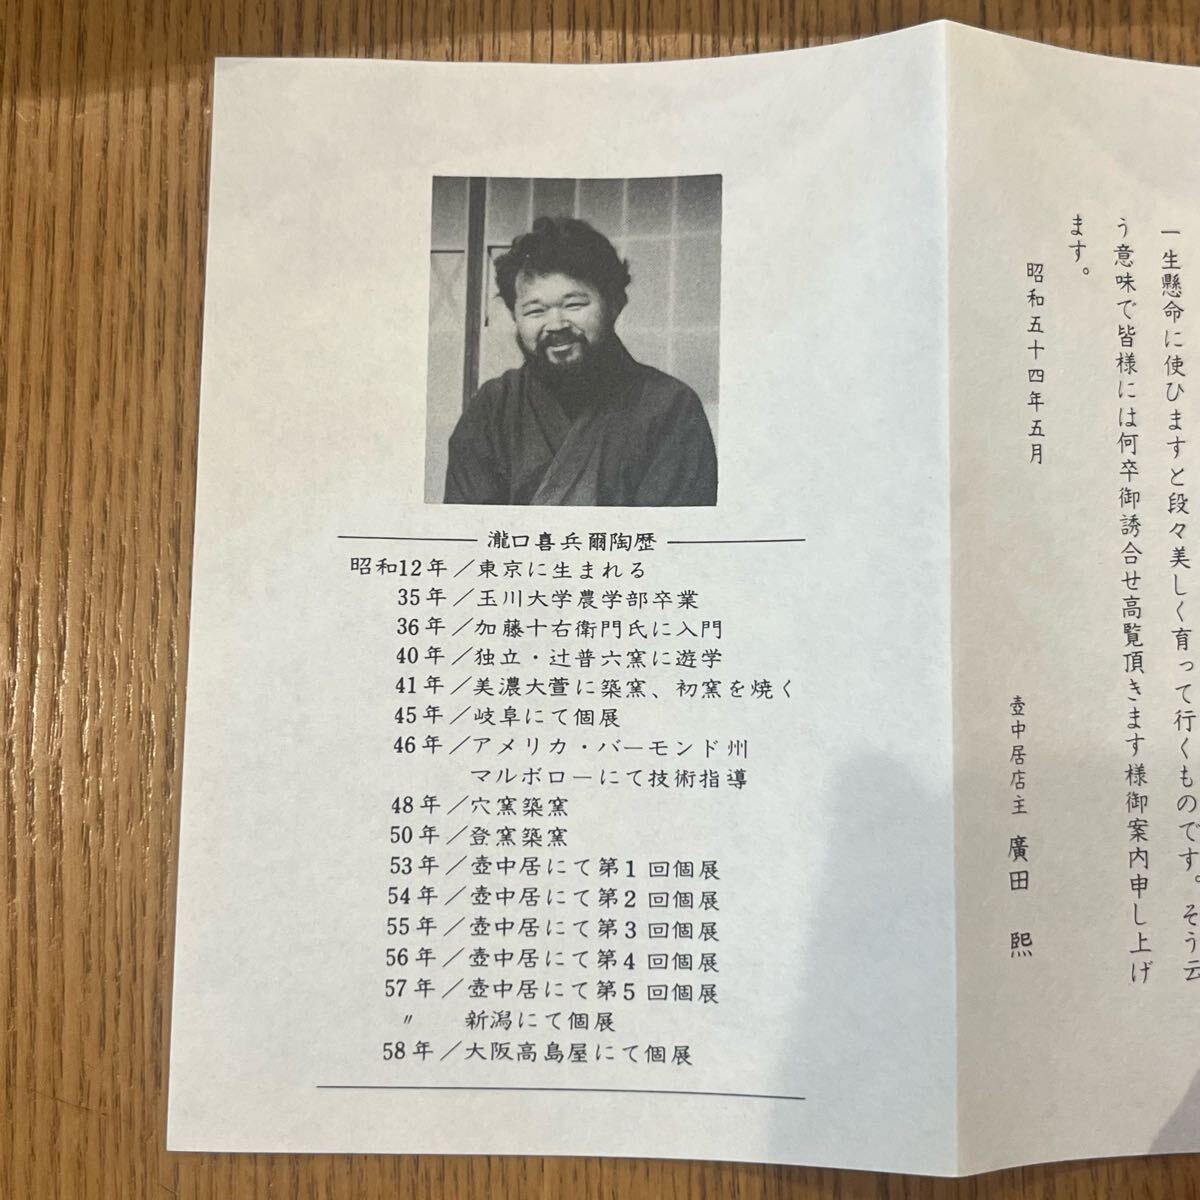 一生懸命に使ひますと段々美しく育って行くものです。そう云
う意味で皆様には何卒御誘合せ高覧頂きます様御案内申し上げ
ます。
昭和五十四年五月
壺中居店主 廣田 熙
瀧口喜兵爾陶歴
昭和12年／東京に生まれる
35年／玉川大学農学部卒業
36年／加藤十右衛門氏に入門
40年／独立・辻普六窯に遊学
41年／美濃大萱に築窯、初窯を焼く
45年／岐阜にて個展
46年／アメリカ・バーモンド州
マルボローにて技術指導
48年／穴窯築窯
50年／登窯築窯
53年／壺中居にて第1回個展
54年／壺中居にて第2回個展
55年／壺中居にて第3回個展
56年／壺中居にて第4回個展
57年／壺中居にて第5回個展
〃 新潟にて個展
58年／大阪高島屋にて個展